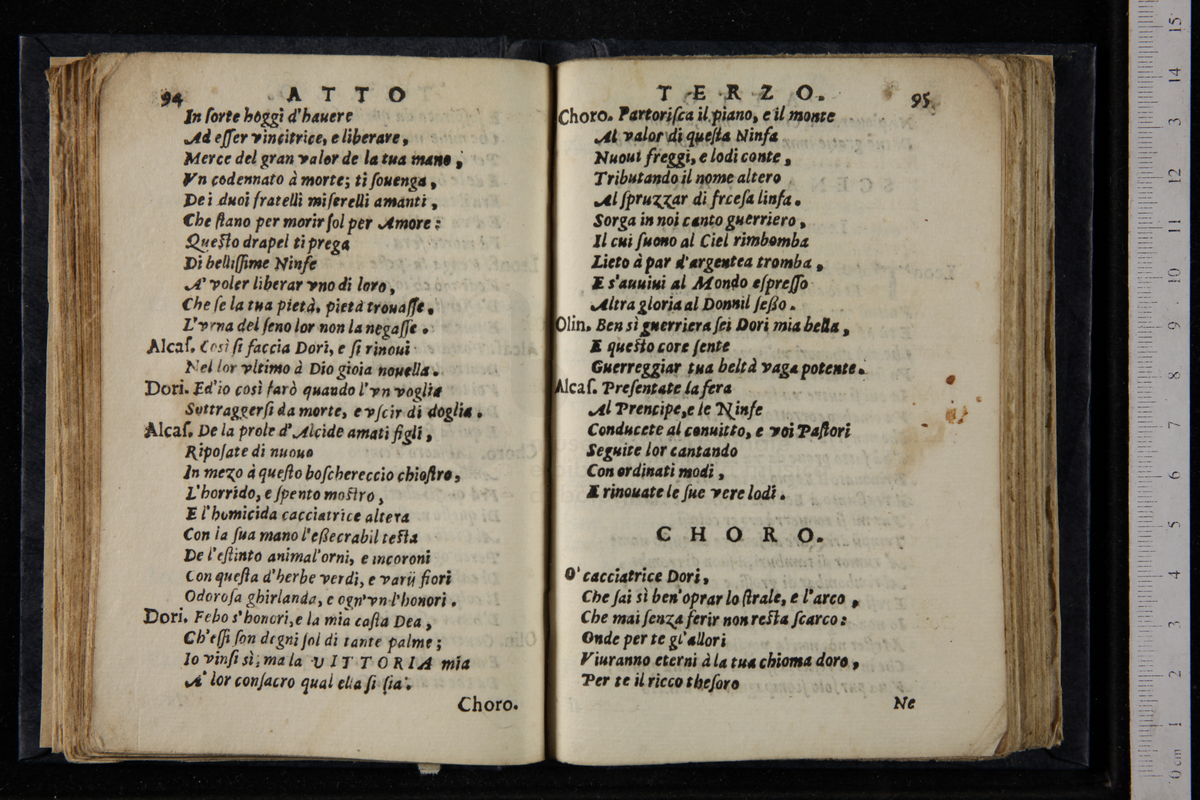 94 ATTO
In ſorte hoggi d'hauere
Ad eſſer vincitrice, e liberare,
Merce del gran valor de la tua mano,
Vn codennato à morte; ti ſouenga,
De i duoi fratelli miſerelli amanti,
Che ſtano per morir ſol per Amore:
Queſto drapel ti prega
Di belliſſime Ninfe
A' voler liberar vno di loro,
Che ſe la tua pietà, pietà trouaſſe,
L'vrna del ſeno lor non la negaſſe.
Alcaſ. Così ſi faccia Dori, e ſi rinoui
Nel lor vltimo à Dio gioia nouella.
Dori. Ed'io così farò quando l'vn voglia
Sottraggerſi da morte, e vſcir di doglia.
Alcaſ. De la prole d'Alcide amati figli,
Ripoſate di nuouo
In mezo à queſto boſchereccio chioſtro,
L'horrido, e ſpento moſtro,
E l'homicida cacciatrice altera
Con la ſua mano l'eßecrabil teſta
De l'eſtinto animal'orni, e incoroni
Con queſta d'herbe verdi, e varij fiori
Odoroſa ghirlanda, e ogn'vn l'honori.
Dori. Febo s'honori, e la mia caſta Dea,
Ch'eſſi ſon degni ſol di tante palme;
Io vinſi sì, ma la VITTORIA mia
A' lor conſacro qual ella ſi ſia.
Choro.
TERZO. 95
Choro. Partoriſca il piano, e il monte
Al valor di queſta Ninfa
Nuoui freggi, e lodi conte,
Tributando il nome altero
Al ſpruzzar di freeſa linfa.
Sorga in noi canto guerriero,
Il cui ſuono al Ciel rimbomba
Lieto à par d'argentea tromba,
E s'auuiui al Mondo eſpreſſo
Altra gloria al Donnil ſeßo.
Olin. Ben sì guerriera ſei Dori mia bella,
E queſto core ſente
Guerreggiar tua beltà vaga potente.
Alcaſ. Preſentate la fera
Al Prencipe, e le Ninfe
Conducete al conuitto, e voi Paſtori
Seguite lor cantando
Con ordinati modi,
E rinouate le ſue vere lodi.
CHORO.
O' cacciatrice Dori,
Che ſai sì ben'oprar lo ſtrale, e l'arco,
Che mai ſenza ferir non reſta ſcarco:
Onde per te gl'allori
Viuranno eterni à la tua chioma doro,
Per te il ricco theſoro
Ne